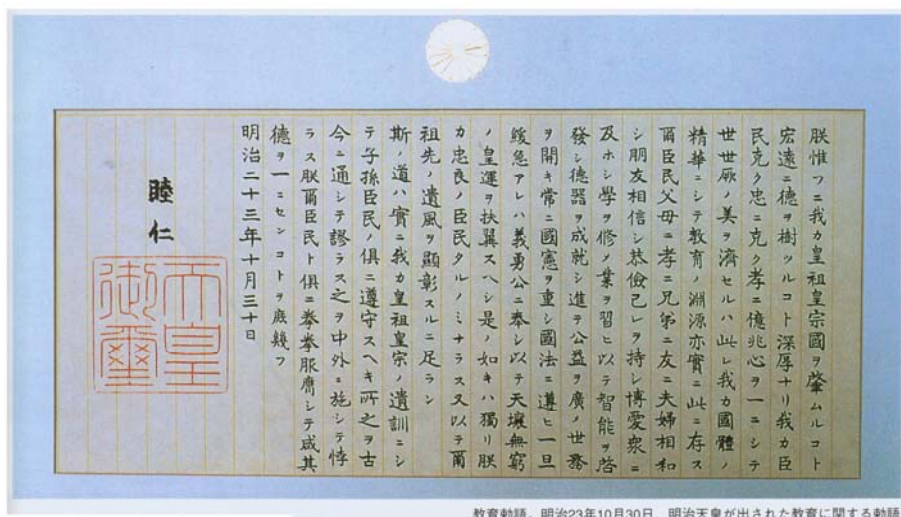 朕惟フニ我カ皇祖皇宗國ヲ肇ムルコト
宏遠ニ德ヲ樹ツルコト深厚ナリ我カ臣
民克ク忠ニ克ク孝ニ億兆心ヲ一ニシテ
世世厥ノ美ヲ濟セルハ此レ我カ國體ノ
精華ニシテ教育ノ淵源亦實ニ此ニ存ス
爾臣民父母ニ孝ニ兄弟ニ友ニ夫婦相和
シ朋友相信シ恭儉己レヲ持シ博愛衆ニ
及ホシ學ヲ修メ業ヲ習ヒ以テ智能ヲ啓
發シ德器ヲ成就シ進テ公益ヲ廣メ世務
ヲ開キ常ニ國憲ヲ重シ國法ニ遵ヒ一旦
緩急アレハ義勇公ニ奉シ以テ天壤無窮
ノ皇運ヲ扶翼スヘシ是ノ如キハ獨リ朕
カ忠良ノ臣民タルノミナラス又以テ爾
祖先ノ遺風ヲ顯彰スルニ足ラン
斯ノ道ハ實ニ我カ皇祖皇宗ノ遺訓ニシ
テ子孫臣民ノ俱ニ遵守スヘキ所之ヲ古
今ニ通シテ謬ラス之ヲ中外ニ施シテ悖
ラス朕爾臣民ト俱ニ拳拳服膺シテ咸其
德ヲ一ニセンコトヲ庶幾フ
明治二十三年十月三十日
睦仁
天皇
御璽
教育勅語。明治23年10月30日、明治天皇が出された教育に関する勅語